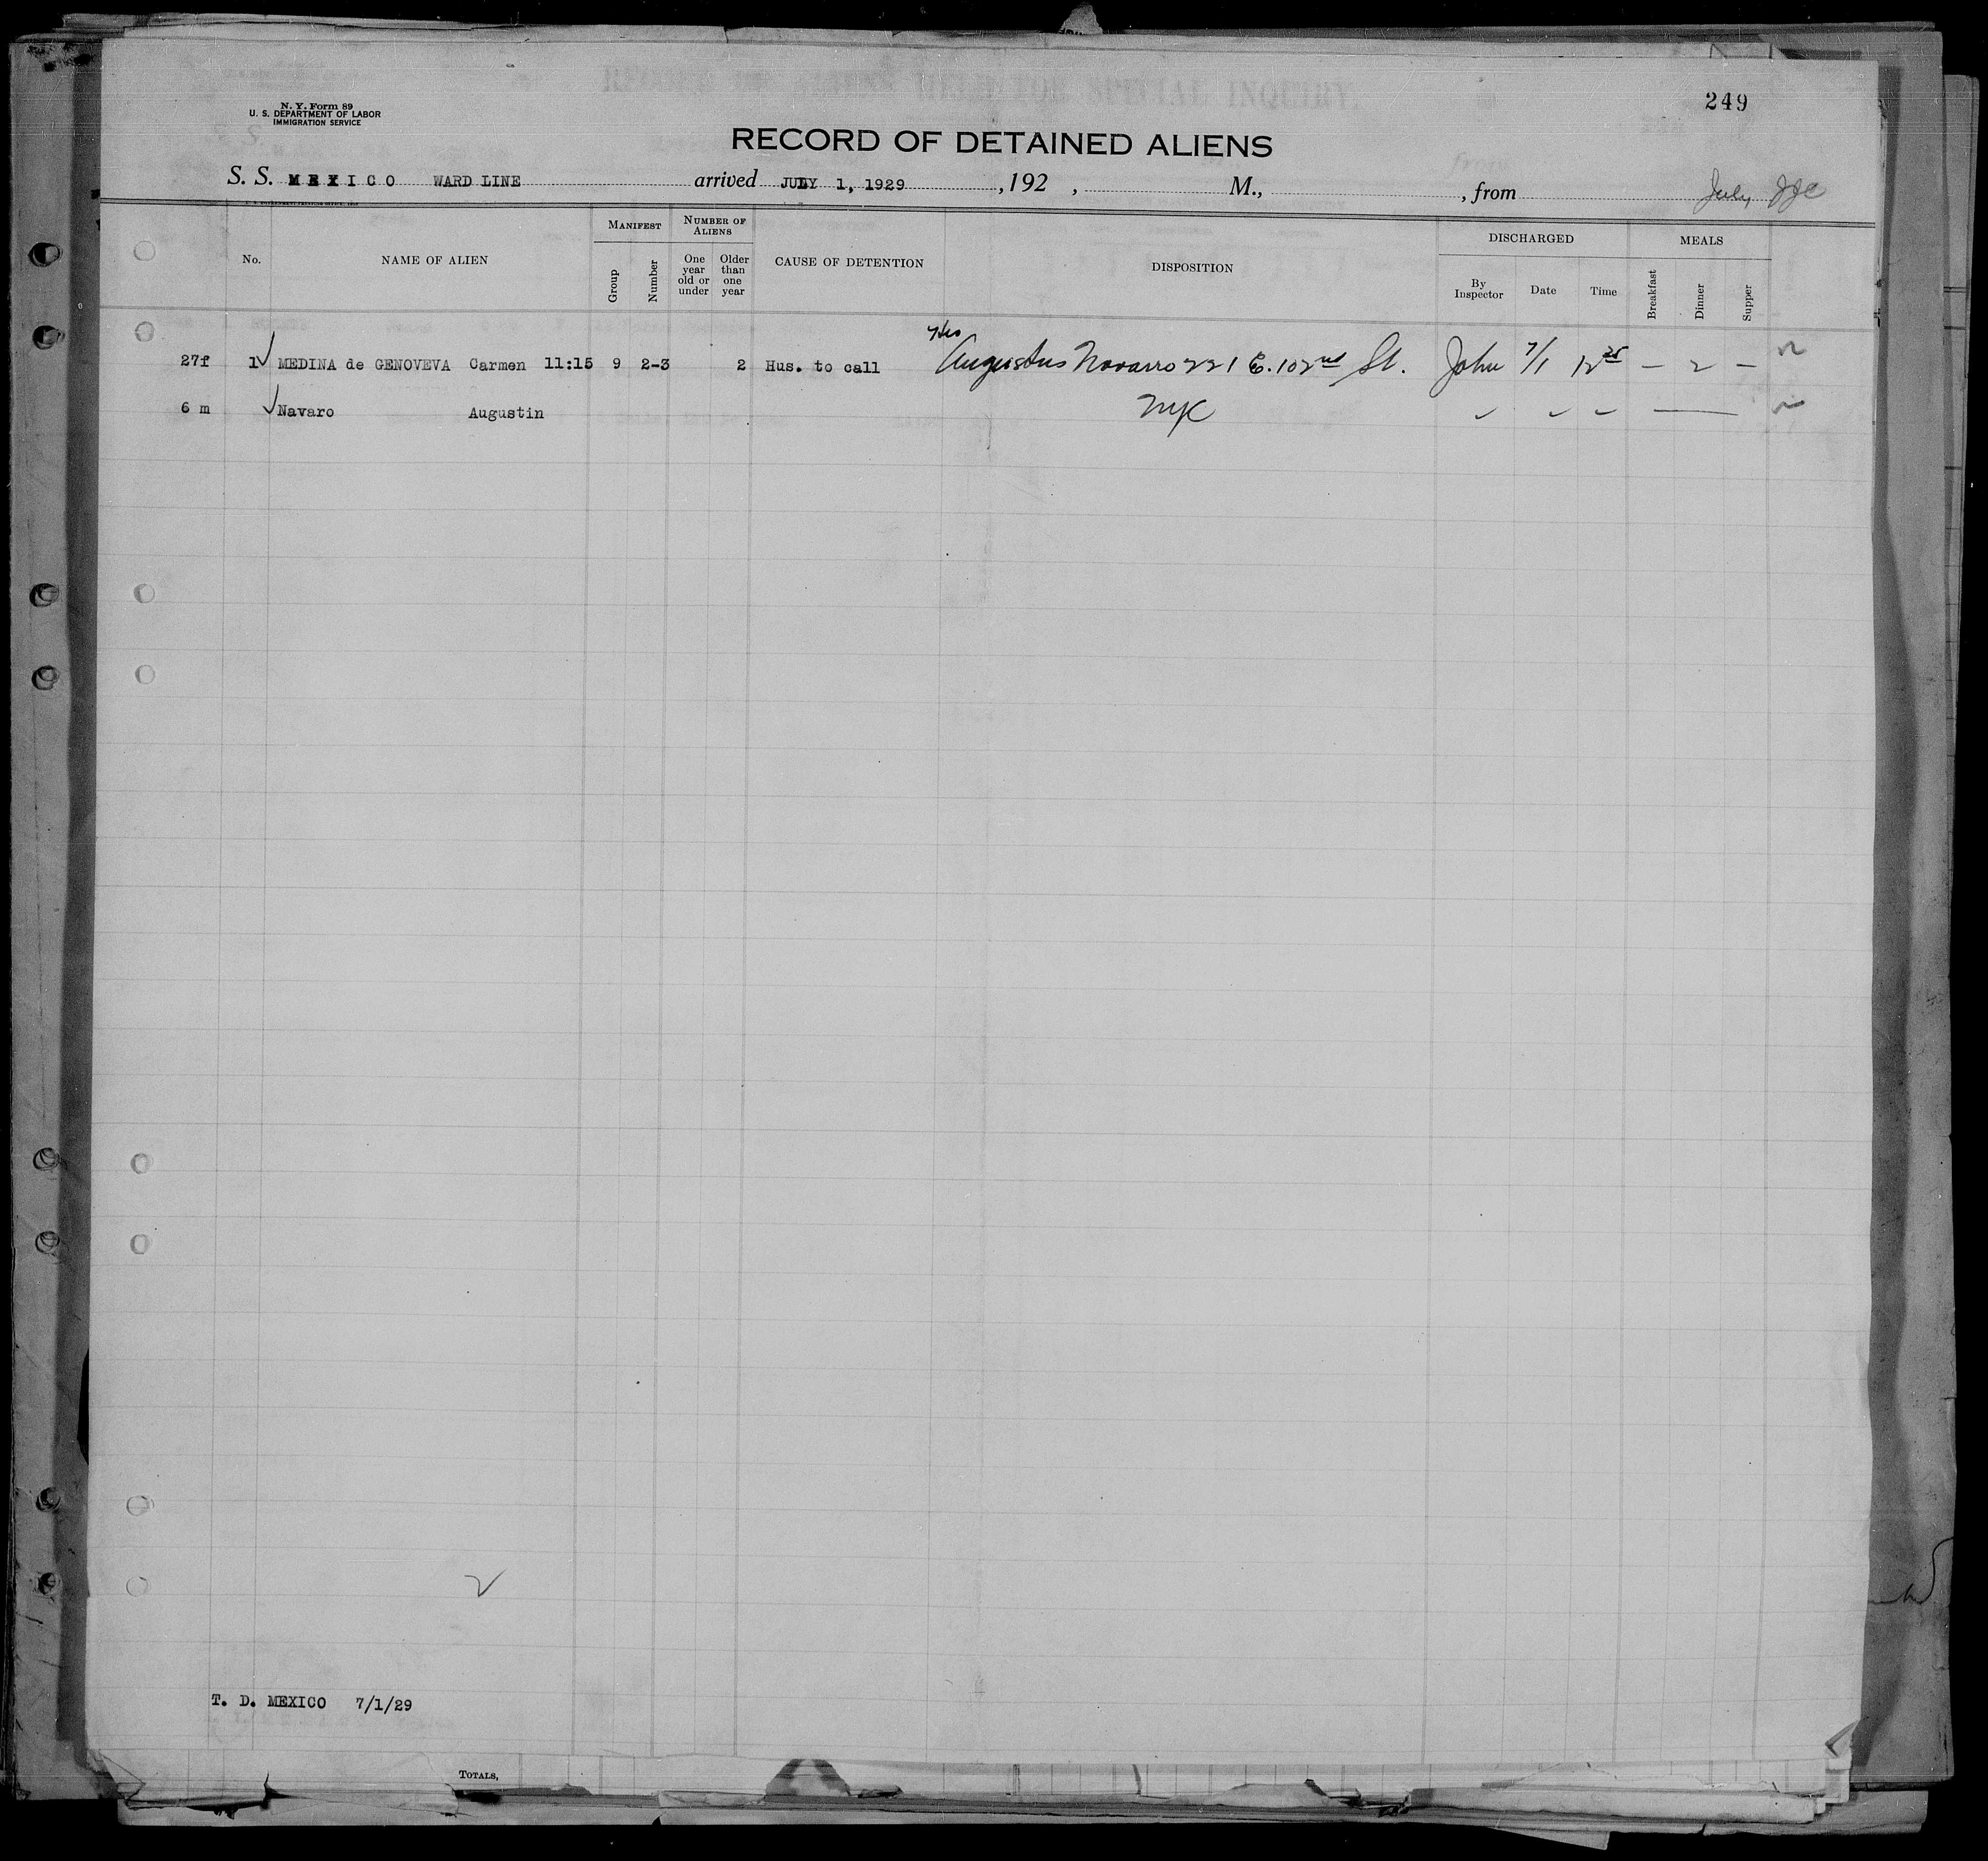 249
N. Y. Form 89
U. S. DEPARTMENT OF LABOR
IMMIGRATION SERVICE
RECORD OF DETAINED ALIENS
S. S. MEXICO WARD LINE arrived JULY 1, 1929, 192 , M., , from July
MANIFEST NUMBER OF ALIENS DISCHARGED MEALS
No. NAME OF ALIEN Group Number One year old or under Older than one year CAUSE OF DETENTION DISPOSITION By Inspector Date Time Breakfast Dinner Supper
27f 1 ✓ MEDINA de GENOVEVA Carmen 11:15 9 2-3 2 Hus. to call Augustus Navarro 221 E. 102nd St. John 7/1 12 25 — 2 —
6 m ✓ Navaro Augustin NYC
T. D. MEXICO 7/1/29
TOTALS,